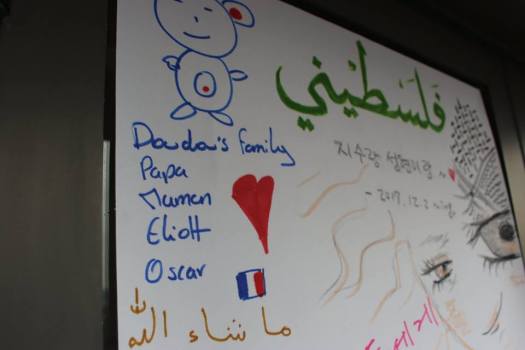 فلسطيني
Doudou's family
Papa
Maman
Eliott
Oscar
ما شاء الله
지수랑 성현이랑~
- 2017.12.2